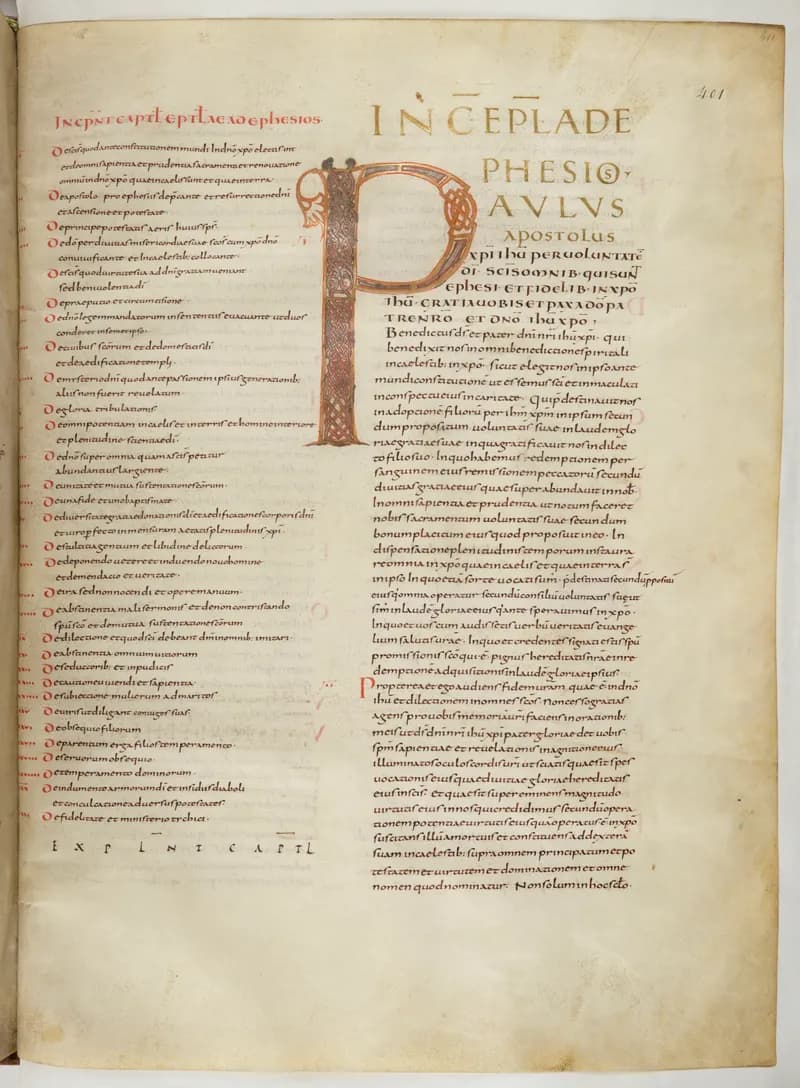 401
INCPNT CAPTL EPTLAE AD EPHESIOS
De eo quod ante constitutionem mundi In dno xpo electi sunt
et de omni sapientia et prudentia sacramenta et renouatione
omniu in dno xpo quae in caelis sunt et quae in terra
De apostolo pro ephesiis depcante et resurrectione dni
et ascensione et potestate
De principe potestatis aeris huius sps
De do per diuitias misericordiae suae scos cum xpo dno
conuiuificante et In caelestib: collocante
De eo quod uirtutes ia ad dni gratiam ueniant
sed beniuolentia di
De praeputio et circumcisione
De dno legem mandatorum in sententiis euacuante ut duos
conderet in semetipso
De ciuibus scorum et de domesticis di
et de aedificatione templi
De mysterio dni quod ante passionem ipsius generationib:
aliis non fuerit reuelatum
De gloria tribulationis
De omnipotentiam in caelis et in terris et homine interiore
et plenitudine scientiae di
De dno super omnia quam a sscis petitur
abundantius largiente
De unitate et mutua sustentatione scorum
De una fide et uno baptismate
De diuersitate gratiae donationis di et aedificatione corporis dni
et uiro pfecto in mensuram aetatis plenitudinis xpi
De stultitia gentium et libidine delictorum
De deponendo uetere et induendo nouo homine
et de mendacio et ueritate
De ira sed non nocendi et opere manuum
De abstinentia mali sermonis et de non contristando
spu sco et de mutua sustentatione scorum
De dilectione et quod sci debeant dm in omnib: imitari
De abstinentia omnium uitiorum
De seductorib: et inpudicis
De cautione uiuendi et sapientia
De subiectione mulierum ad maritos
De uiris ut diligant coniuges suas
De obsequio filiorum
De parentum erga filios temperamento
De seruorum obsequio
De temperamento dominorum
De indumento armorum di et insidiis diaboli
et conculcatione aduersus potestates
De fidelitate et ministerio tychici
EXPLNT CAPTL
INC EPLA DE
PHESIOS
PAVLVS
APOSTOLUS
xpi ihu per uoluntate
di scis omnib. qui sunt
ephesi et fidelib. in xpo
ihu. Gratia uobis et pax a do pa
tre nro et dno ihu xpo.
Benedictus ds et pater dni nri ihu xpi. qui
benedixit nos in omni benedictione spiritali
in caelestib: in xpo. sicut elegit nos in ipso ante
mundi constitutione ut essemus sci et inmaculati
in conspectu eius in caritate. Qui pdestinauit nos
in adoptione filioru per ihm xpm in ipsum secun
dum propositum uoluntatis suae in laudem glo
riae gratiae suae in qua gratificauit nos in dilec
to filio suo. In quo habemus redemptionem per
sanguinem eius remissionem peccatoru secundu
diuitias gratiae eius quae superabundauit in nob.
In omni sapientia et prudentia ut notum faceret
nobis sacramentum uoluntatis suae secundum
bonum placitum eius quod proposuit in eo. In
dispensatione plenitudinis temporum instaura
re omnia in xpo quae in caelis et quae in terra s
in ipso In quo etia sorte uocati sum. pdestinati secundu pposiu
eius q omnia operatur secundu consiliu uoluntatis suae ut
sim in laude gloriae eius q ante sperauimus in xpo.
In quo et uos cum audissetis uerbu ueritatis euange
lium salutis urae. In quo et credentes signati estis spu
promissionis sco qui e. pignus hereditatis nrae in re
demptione adquisitionis in laude gloriae ipsius
Propterea et ego audiens fidem uram. quae e. in dno
ihu et dilectionem in omnes scos. Non cesso gratias
agens pro uobis memoria uri faciens in orationib:
meis ut ds dni nri ihu xpi pater gloriae det uobis
spm sapientiae et reuelationis in agnitione eius
illuminatos oculos cordis uri ut sciatis quae sit spes
uocationis eius quae diuitiae gloriae hereditatis
eius in scis et quae sit supereminens magnitudo
uirtutis eius in nos qui credidimus secundu opera
tionem potentiae uirtutis eius qua operatus e in xpo
suscitans illu a mortuis et constituens ad dextera
suam in caelestib: supra omnem principatum et po
testatem et uirtutem et dominationem et omne
nomen quod nominatur. Non solum in hoc sclo.